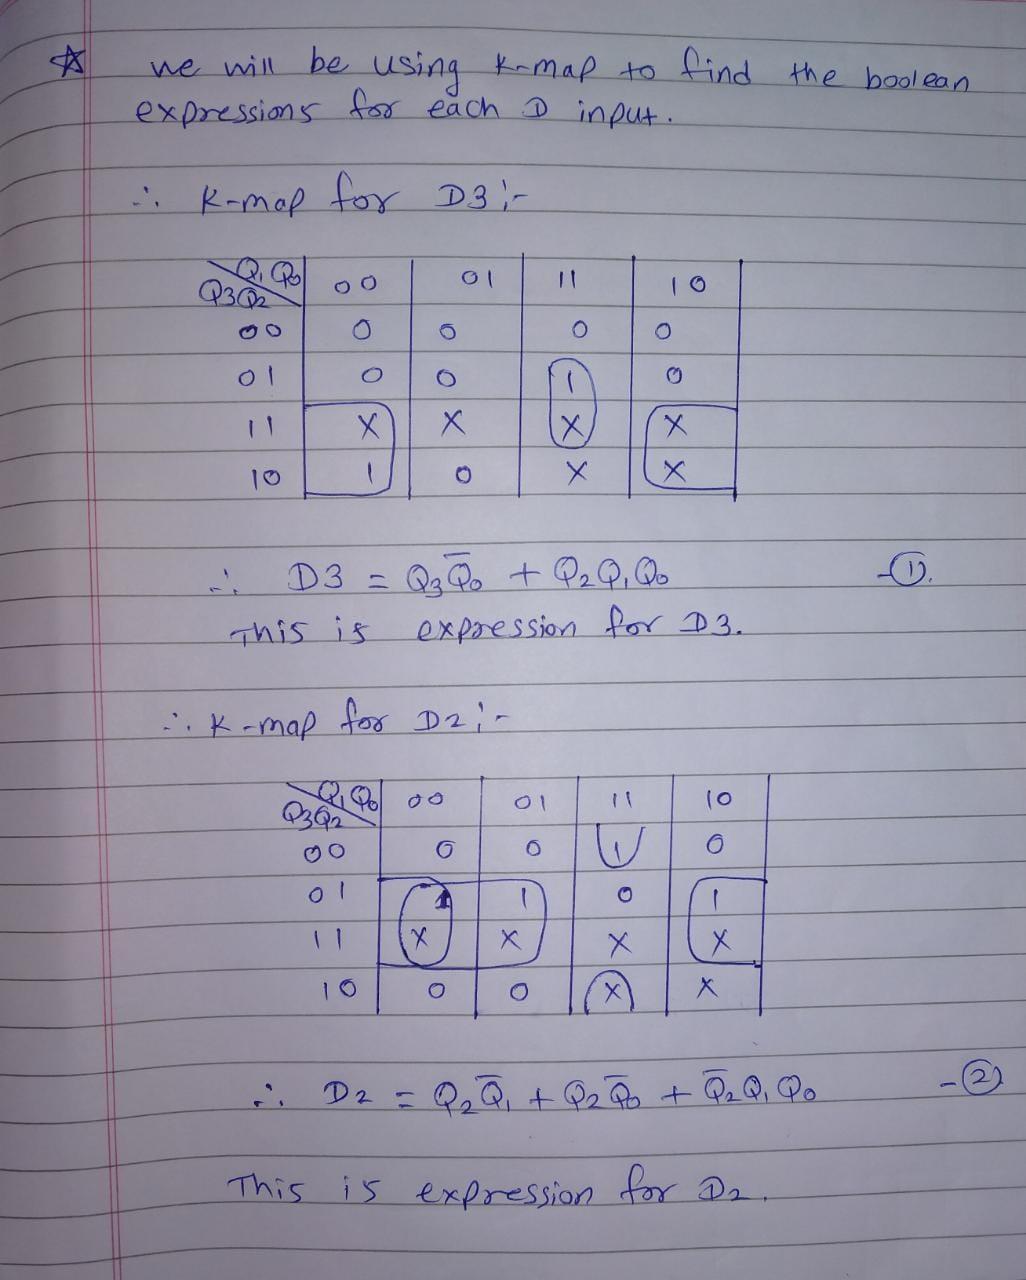 ☆ we will be using K-map to find the boolean
expressions for each D input.
∴ K-map for D3 :-
Q1 Q0 00 01 11 10
Q3Q2
00 0 0 0 0
01 0 0 1 0
11 X X X X
10 1 0 X X
∴ D3 = Q3Q̅0 + Q2Q1Q0 -①.
This is expression for D3.
∴ K-map for D2 :-
Q1 Q0 00 01 11 10
Q3Q2
00 0 0 1 0
01 1 1 0 1
11 X X X X
10 0 0 X X
∴ D2 = Q2Q̅1 + Q2Q̅0 + Q̅2Q1Q0 -②
This is expression for D2.